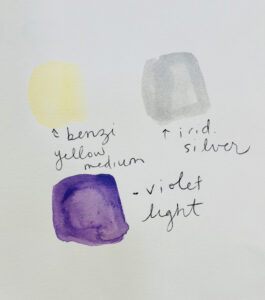 ↑ benzi
yellow
medium
↑ irid.
silver
- violet
light